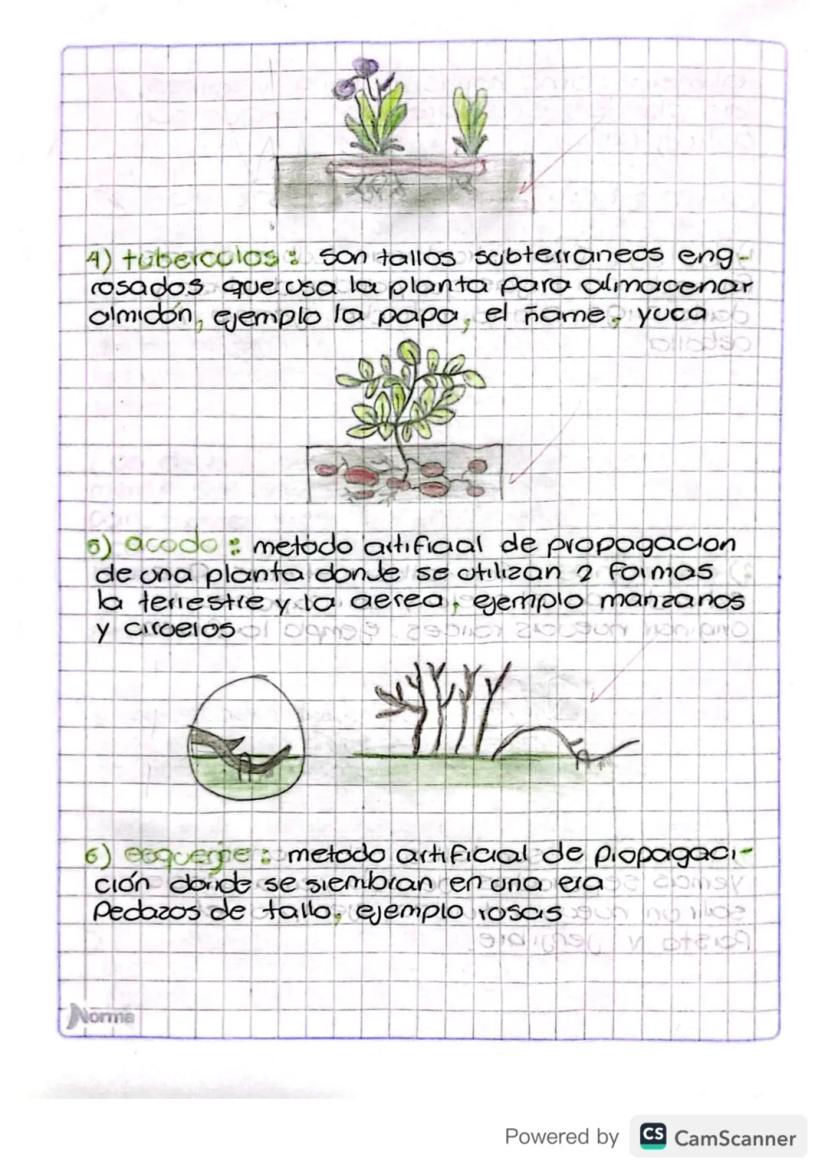 4) tuberculos: son tallos subterraneos eng-
rosados que usa la planta para almacenar
almidón, ejemplo la papa, el ñame, yuca
5) acodo: metodo artificial de propagacion
de una planta donde se utilizan 2 formas
la terrestre y la aerea, ejemplo manzanos
y ciruelos
6) esqueje: metodo artificial de propagaci-
ción donde se siembran en una era
Pedazos de tallo, ejemplo rosas
Norma
Powered by CS CamScanner